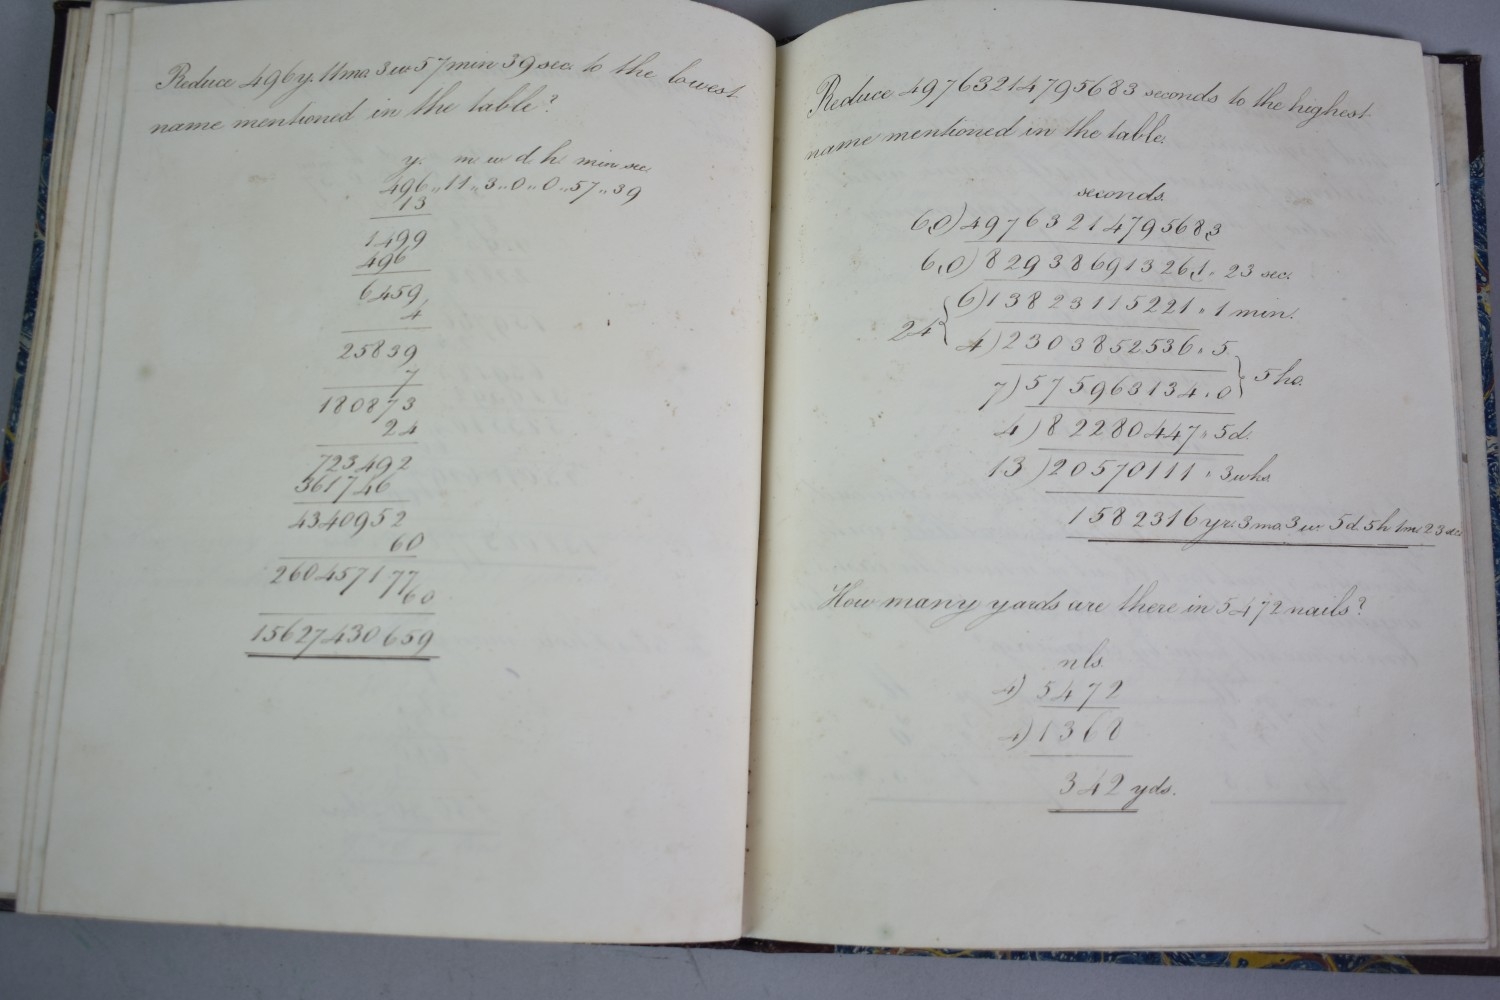 Reduce 496y. 11mo 3w 57min 39sec. to the lowest
name mentioned in the table?
y. m w d. h. min sec.
496,,11,,3,,0,,0,,57,,39
13
1499
496
6459
4
25839
7
180873
24
723492
361746
4340952
60
260457177
60
15627430659
Reduce 49763214795683 seconds to the highest
name mentioned in the table.
seconds.
6,0)4976321479568,3
6,0)82938691326,1,, 23 sec.
24 { 6)13823115221,, 1 min.
4)2303852536,, 5
7)575963134,, 0 } 5 ho.
4)82280447,, 5d.
13)20570111,, 3wks.
1582316yr. 3mo. 3w. 5d. 5h 1m 23sec.
How many yards are there in 5472 nails?
nls.
4)5472
4)1368
342 yds.